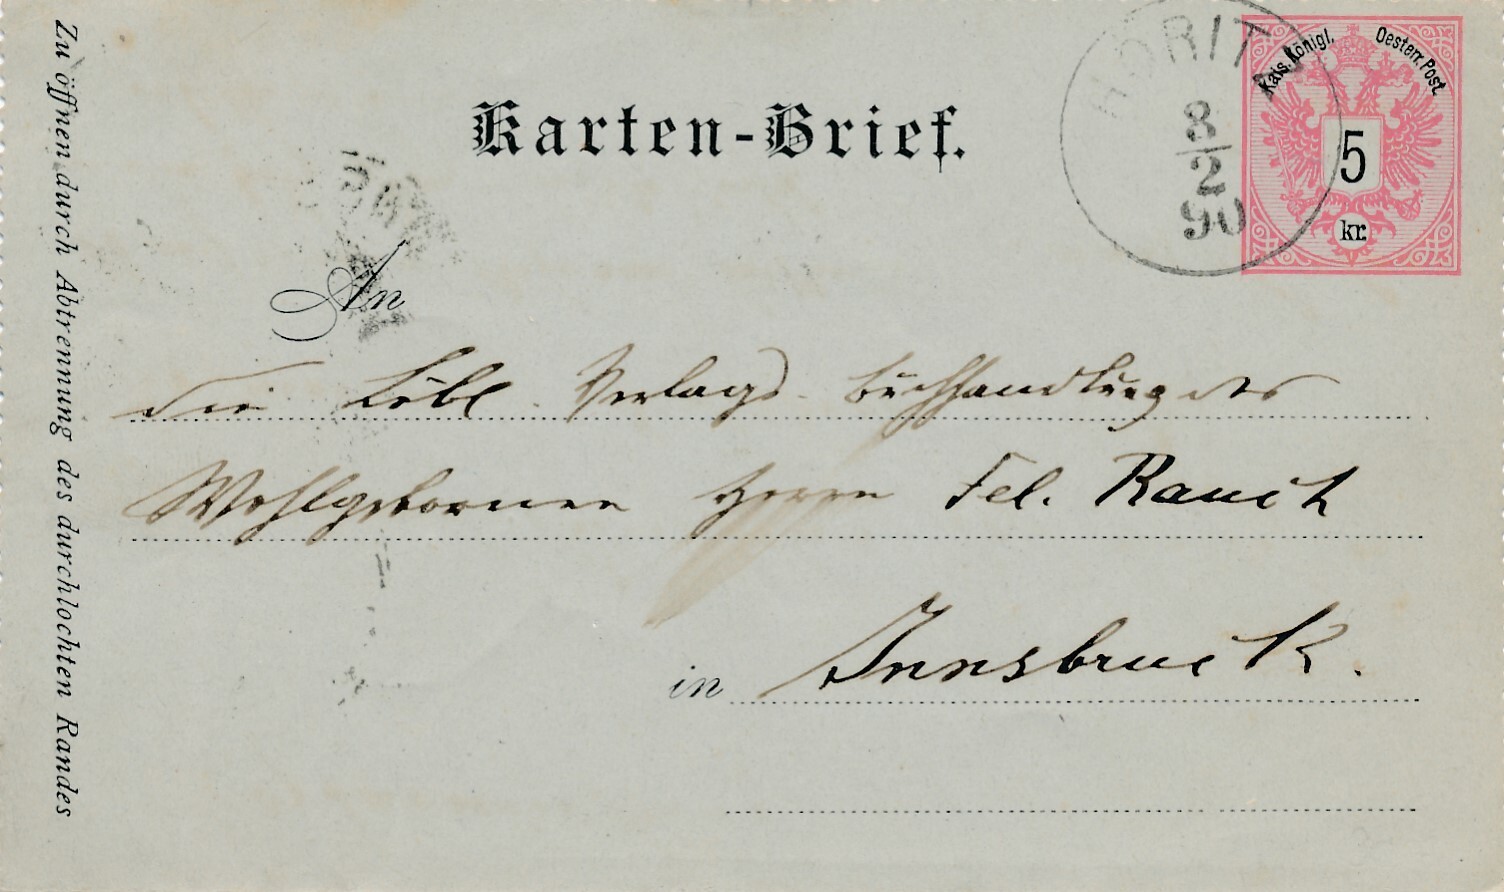 Karten-Brief.
HÖRITZ
8
2
90
Kais. Königl. Oesterr. Post.
5
kr.
An
die Löbl. Verlags-buchhandlung des
Wohlgebornen Herrn Fel. Rauch
in Innsbruck.
Zu öffnen durch Abtrennung des durchlochten Randes